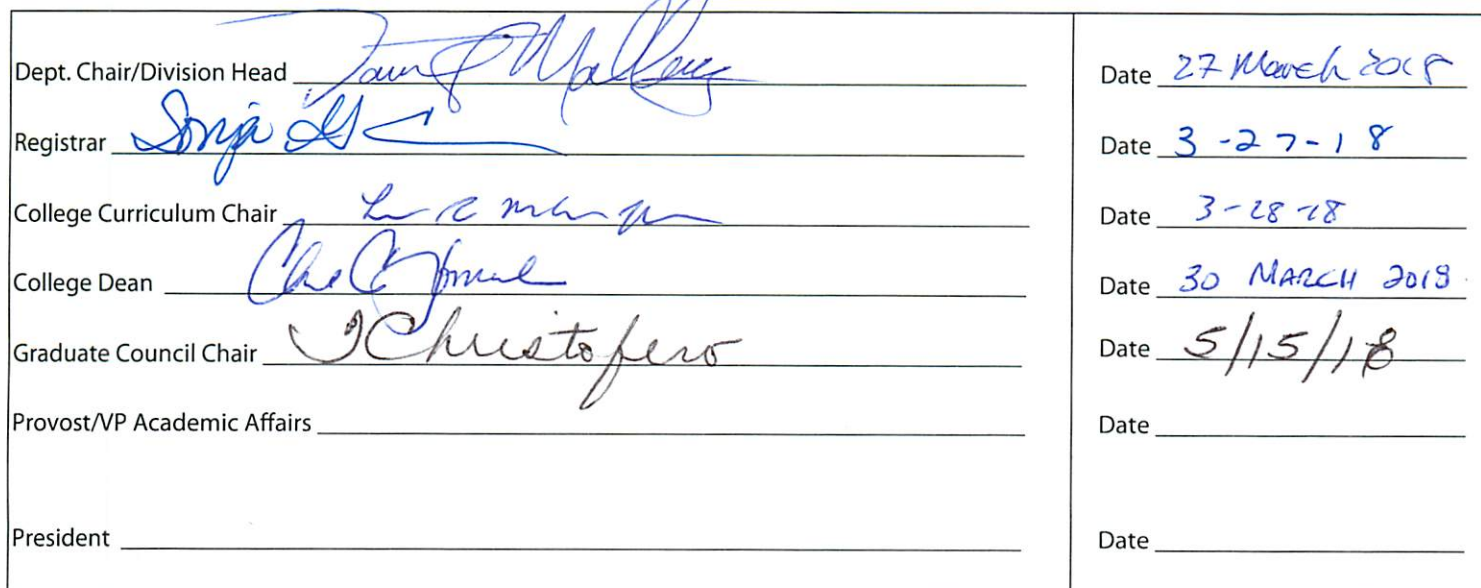 Dept. Chair/Division Head Date 27 March 2018
Registrar Sonja Date 3-27-18
College Curriculum Chair Date 3-28-18
College Dean Date 30 MARCH 2018
Graduate Council Chair Christofero Date 5/15/18
Provost/VP Academic Affairs Date
President Date